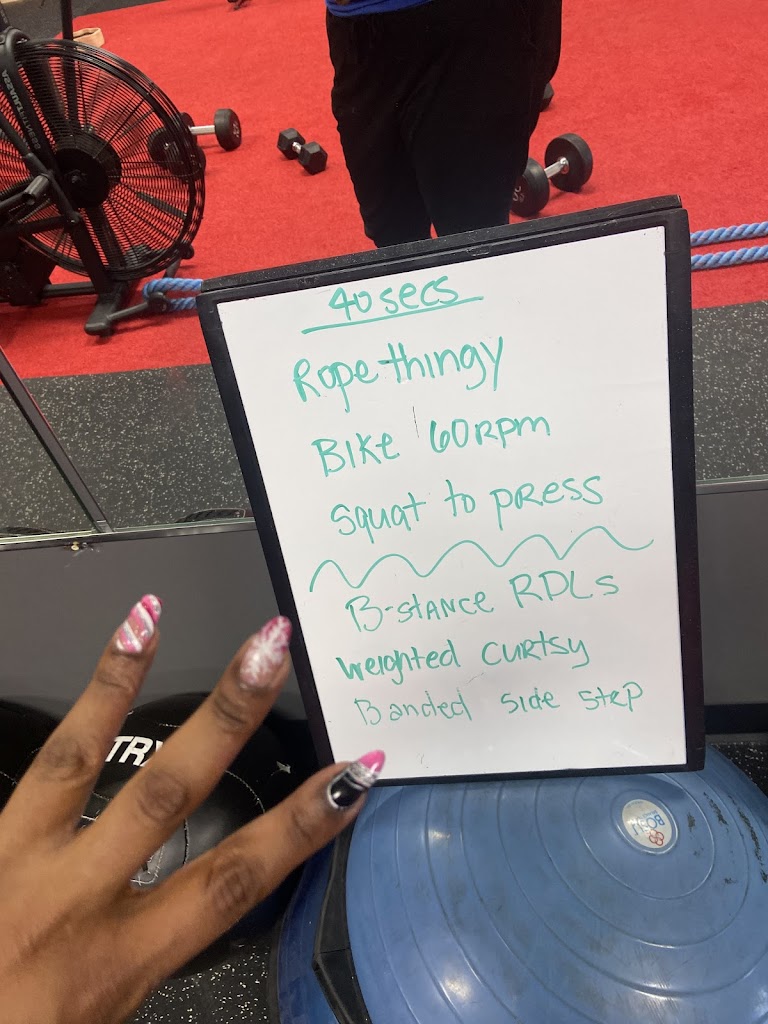 40 secs
Rope thingy
Bike 60RPM
Squat to press
B-stance RDLs
weighted curtsy
Banded side step
TRX
BOSU